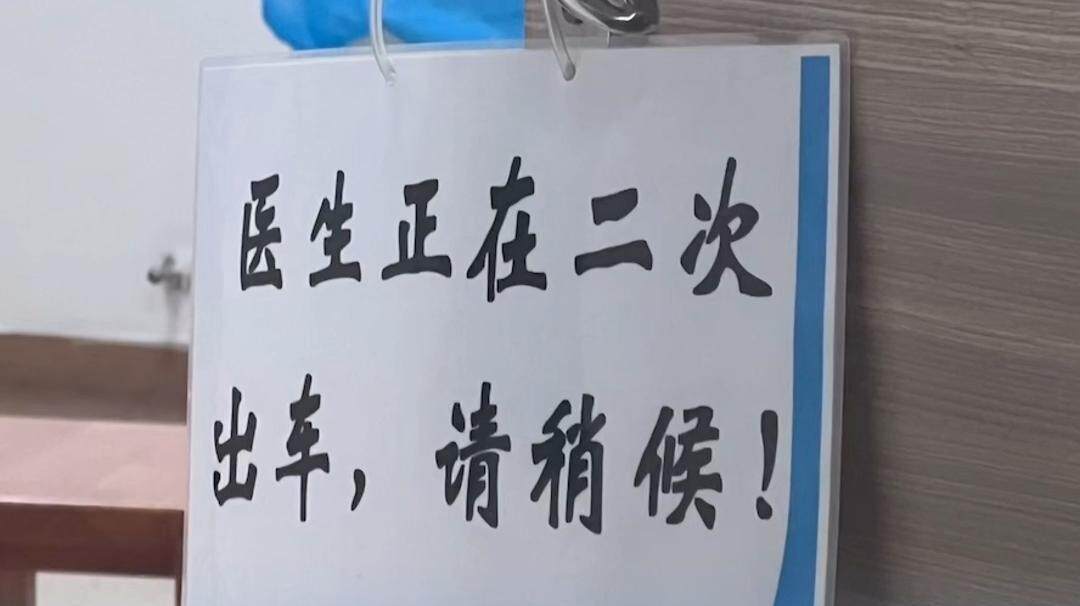 医生正在二次
出车，请稍候！